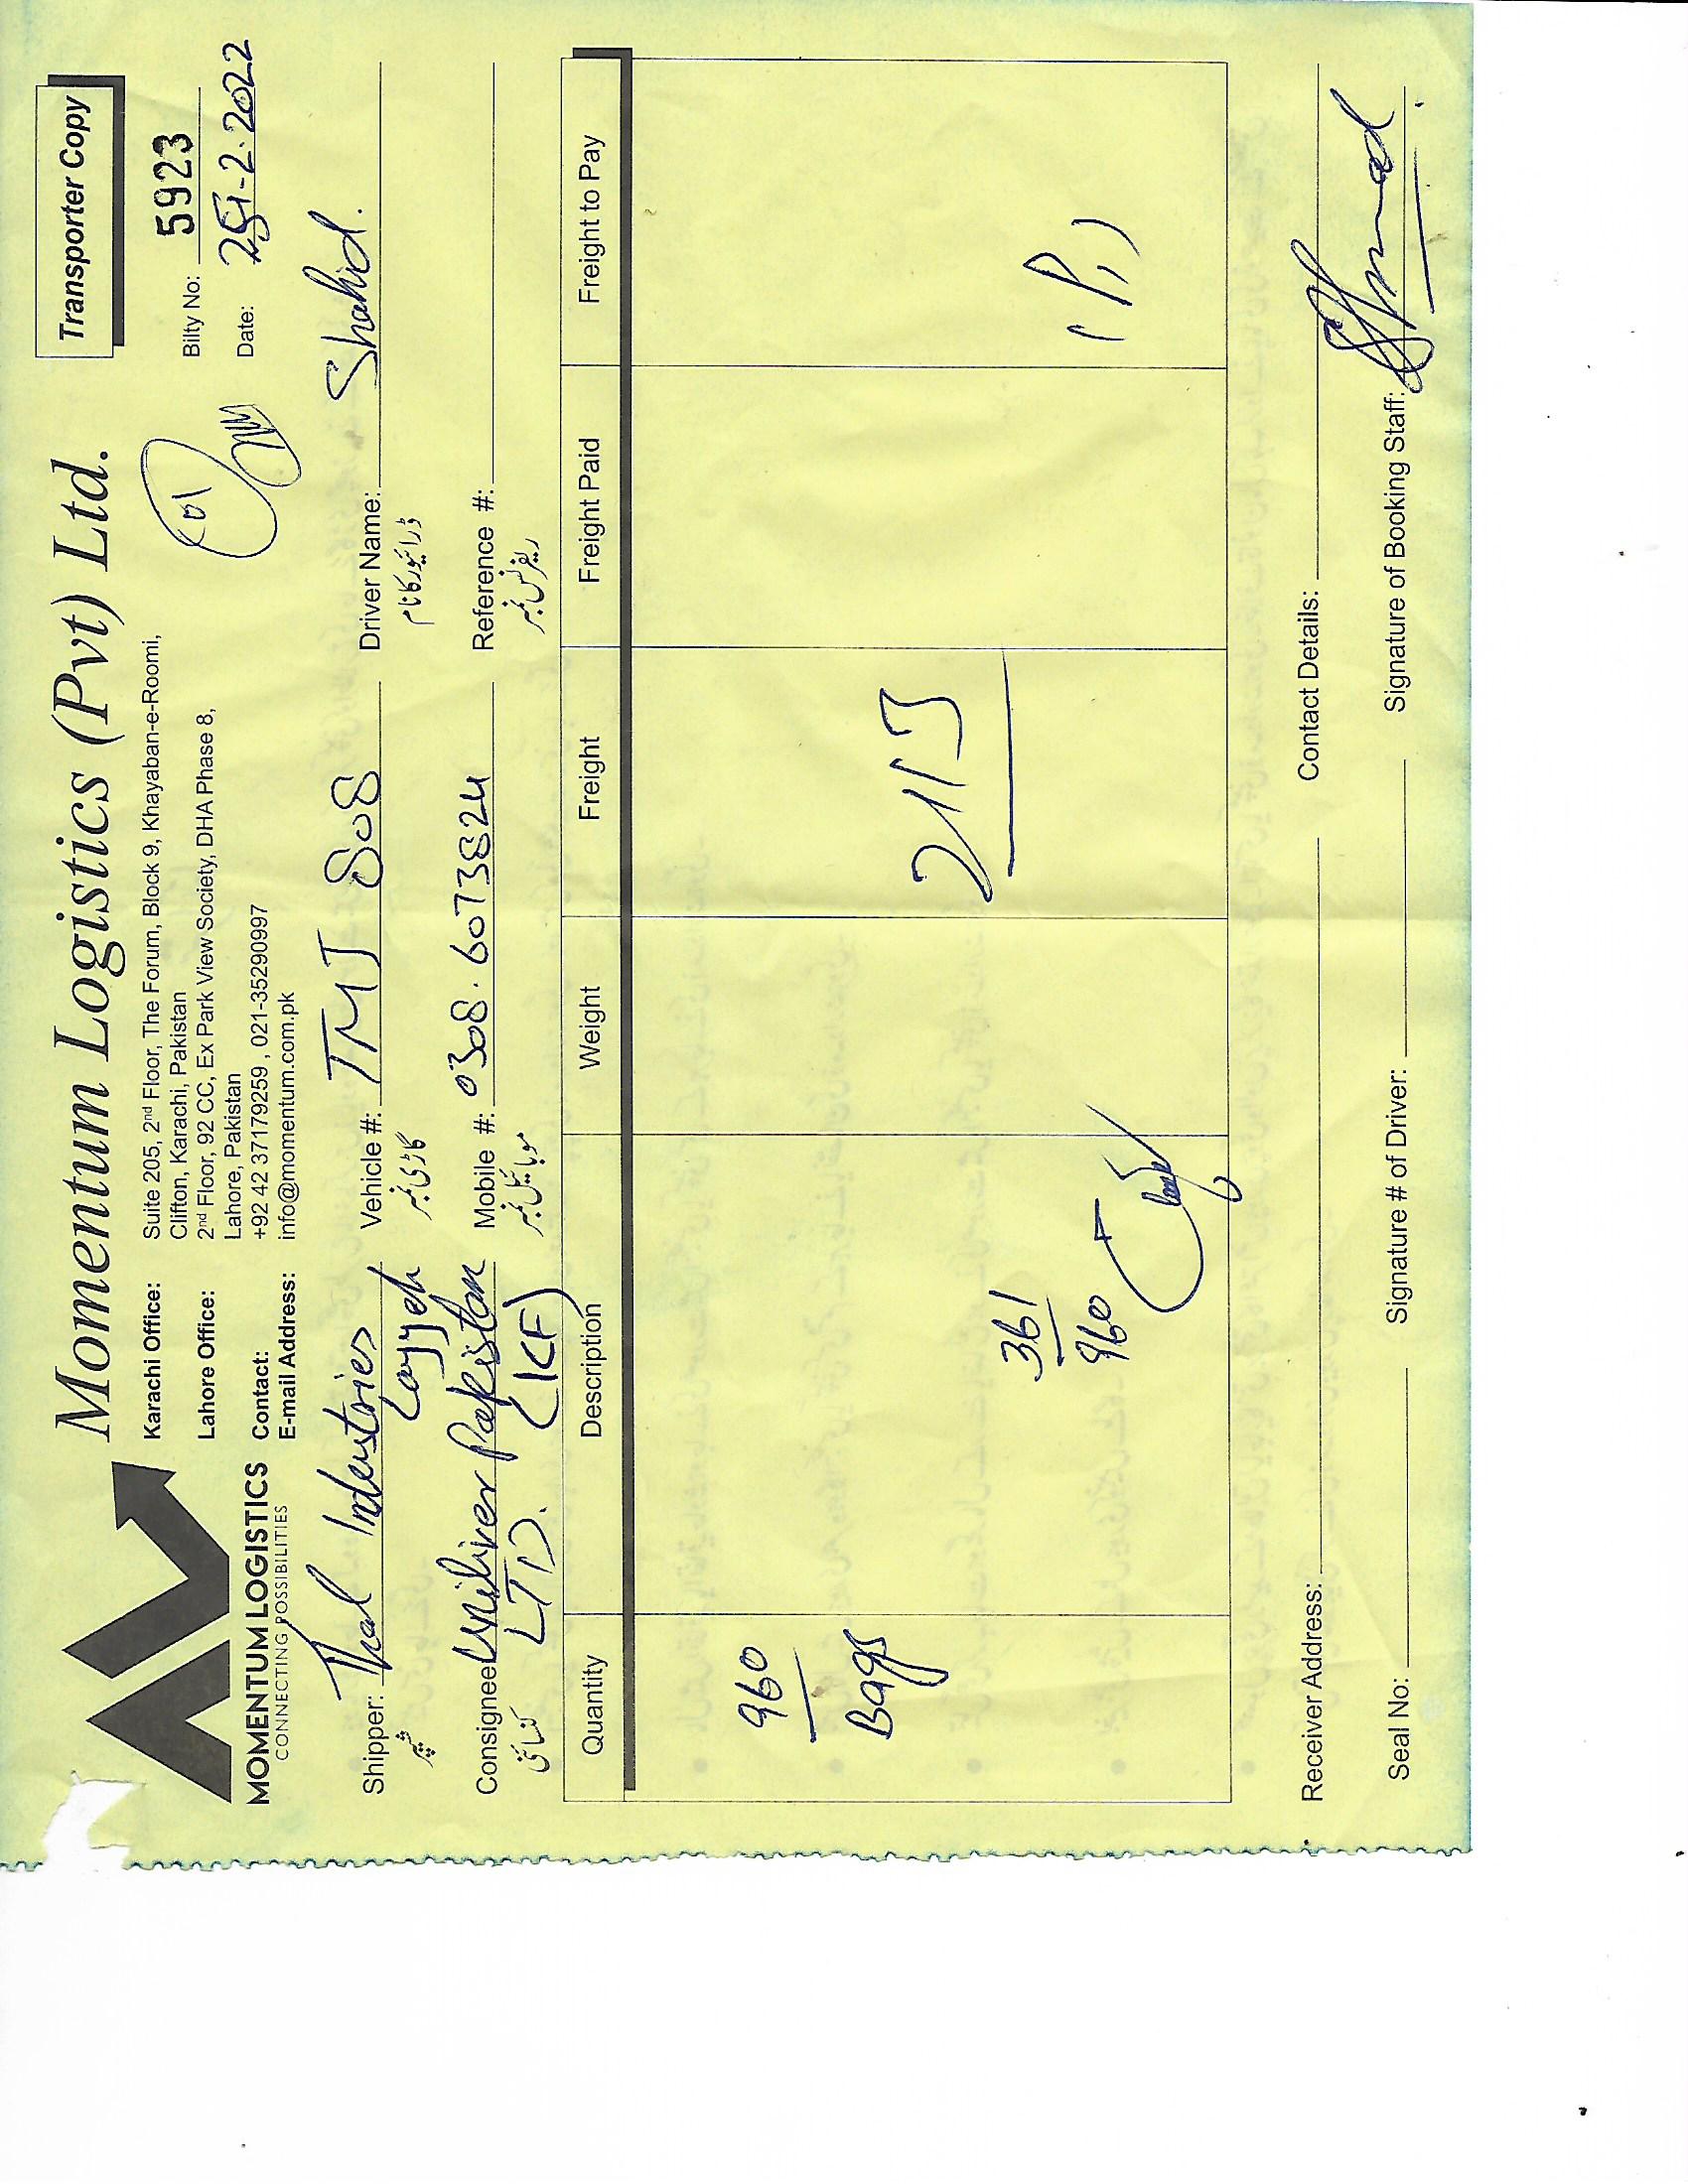 Momentum Logistics (Pvt) Ltd.
Transporter Copy
MOMENTUM LOGISTICS
CONNECTING POSSIBILITIES
Karachi Office: Suite 205, 2nd Floor, The Forum, Block 9, Khayaban-e-Roomi,
Clifton, Karachi, Pakistan
Lahore Office: 2nd Floor, 92 CC, Ex Park View Society, DHA Phase 8,
Lahore, Pakistan
Contact: +92 42 37179259 , 021-35290997
E-mail Address: info@momentum.com.pk
Bilty No: 5923
Date: -2.2022
Shipper: Thal Industries Vehicle #: TMJ 808 Driver Name: Shahid.
شپر Layyah گاڑی نمبر ڈرائیور کا نام
Consignee Uniliver Pakistan Mobile #: 0308.6073824 Reference #:
کنسائنی LTD. (ICF) موبائیل نمبر ریفرنس نمبر
Quantity Description Weight Freight Freight Paid Freight to Pay
960
Bags
2113
361
960
Receiver Address: Contact Details:
Seal No: Signature # of Driver: Signature of Booking Staff: